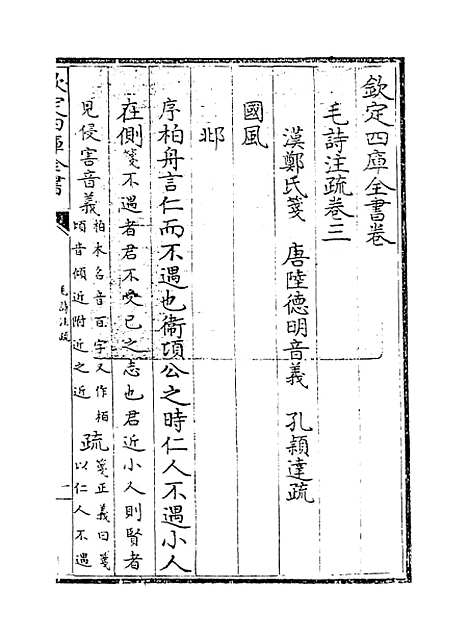 欽定四庫全書卷
毛詩注疏卷三
漢鄭氏箋　唐陸德明音義　孔穎達疏
國風
邶
序柏舟言仁而不遇也衞頃公之時仁人不遇小人
在側箋不遇者君不受己之志也君近小人則賢者
見侵害音義柏木名音百字又作栢
頃音傾近附近之近
疏箋正義曰箋
以仁人不遇
欽定四庫全書
毛詩注疏
一